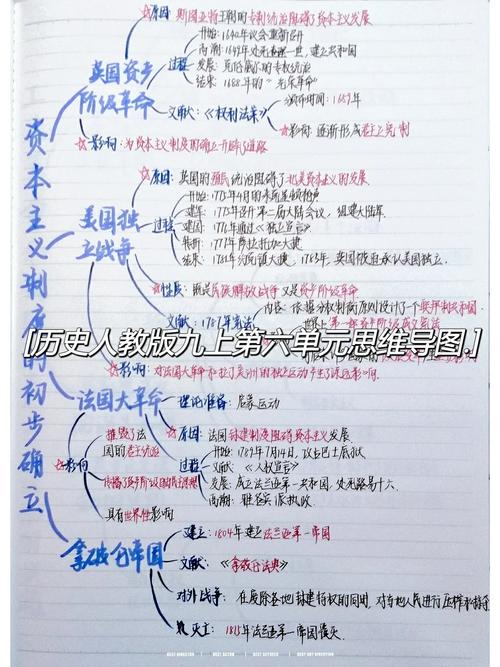 资本主义制度的初步确立
英国资产阶级革命
原因：斯图亚特王朝的专制统治阻碍了资本主义发展
过程
开始：1640年议会重新召开
高潮：1649年处死查理一世，建立共和国
发展：克伦威尔的专权统治
结果：1688年的“光荣革命”
文献：《权利法案》
颁布时间：1689年
影响：逐渐形成君主立宪制
影响：为资本主义制度的确立开辟了道路
美国独立战争
原因：英国的殖民统治阻碍了北美资本主义的发展
过程
开始：1775年4月的来克星顿枪声
建军：1775年召开第二届大陆会议，组建大陆军
建国：1776年通过《独立宣言》
转折：1777年萨拉托加大捷
结果：1781年约克镇大捷，1783年，英国被迫承认美国独立
性质：既是民族解放战争又是资产阶级革命
文献：1787年宪法
内容：依据分权制衡原则设计了一个联邦制共和国
世界上第一部资产阶级成文宪法
[历史人教版九上第六单元思维导图.]
影响：对法国大革命和拉丁美洲的独立运动产生了深远影响
法国大革命
理论准备：启蒙运动
原因：法国封建制度阻碍资本主义发展
过程
开始：1789年7月14日，攻占巴士底狱
文献：《人权宣言》
发展：成立法兰西第一共和国，处死路易十六
高潮：雅各宾派执政
影响
摧毁了法国的君主统治
传播了资产阶级自由民主思想
具有世界性影响
拿破仑帝国
建立：1804年建立法兰西第一帝国
文献：《拿破仑法典》
对外战争：在废除各地封建特权的同时，对当地人民进行压榨和掠夺
灭亡：1815年法兰西第一帝国覆灭
BEST DIRECTOR
BEST ACTOR
BEST ACTRESS
BEST ART DIRECTION